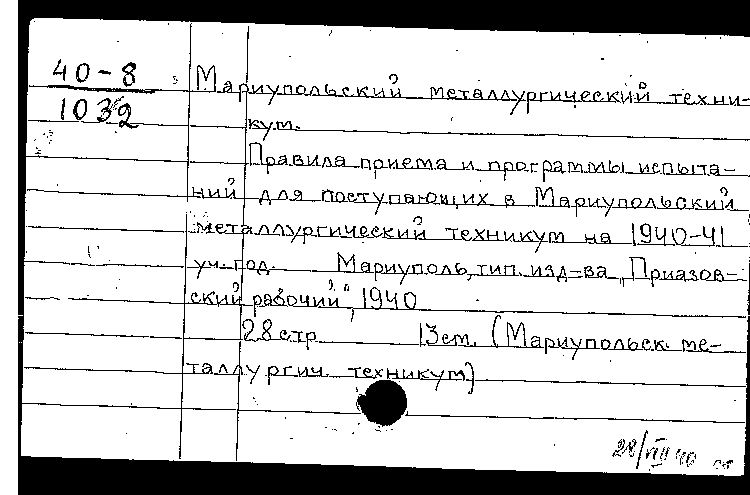 40-8
1032
Мариупольский металлургический техни-
кум.
Правила приема и программы испыта-
ний для поступающих в Мариупольский
металлургический техникум на 1940-41
уч. год. Мариуполь, тип. изд-ва „Приазов-
ский рабочий", 1940
28 стр 13 см. (Мариупольск. ме-
таллургич. техникум)
28/VIII 40